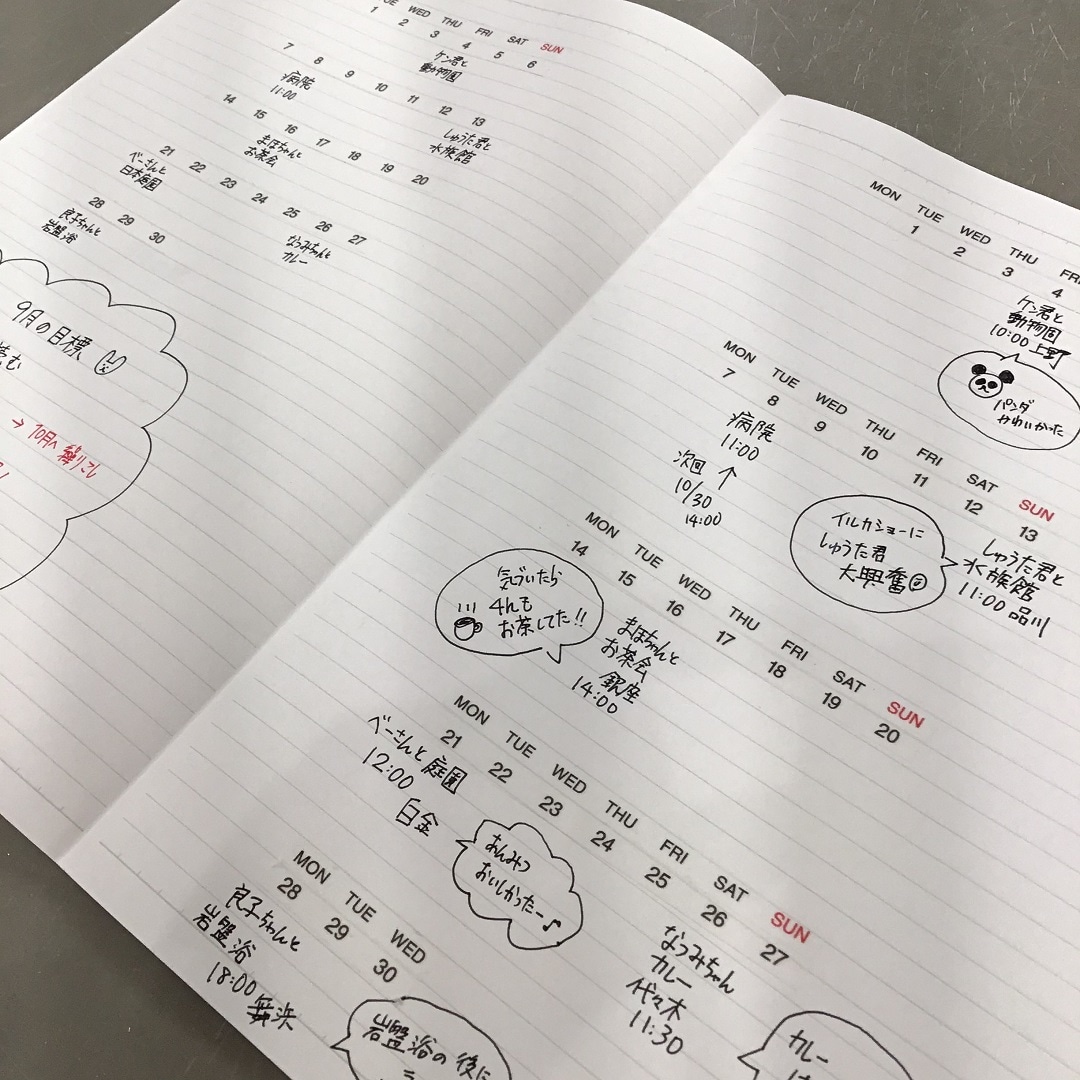 UE WED THU FRI SAT SUN
1 2 3 4 5 6
ケン君と
動物園
7 8 9 10 11 12 13
病院
11:00
しゅうた君と
水族館
14 15 16 17 18 19 20
まほちゃんと
お茶会
21 22 23 24 25 26 27
べーさんと
日本庭園
なつみちゃんと
カレー
28 29 30
良子ちゃんと
岩盤浴
9月の目標
読む
→ 10月へ繰りこし
MON TUE WED THU FRI
1 2 3 4
ケン君と
動物園
10:00 上野
パンダ
かわいかった
MON TUE WED THU FRI SAT SUN
7 8 9 10 11 12 13
病院
11:00
次回
10/30
14:00
イルカショーに
しゅうた君
大興奮
しゅうた君と
水族館
11:00 品川
MON TUE WED THU FRI SAT SUN
14 15 16 17 18 19 20
気づいたら
4hも
お茶してた!!
まほちゃんと
お茶会
銀座
14:00
MON TUE WED THU FRI SAT SUN
21 22 23 24 25 26 27
べーさんと庭園
12:00
白金
あんみつ
おいしかったー♪
なつみちゃん
カレー
代々木
11:30
カレー
MON TUE WED
28 29 30
良子ちゃんと
岩盤浴
18:00
岩盤浴の後に